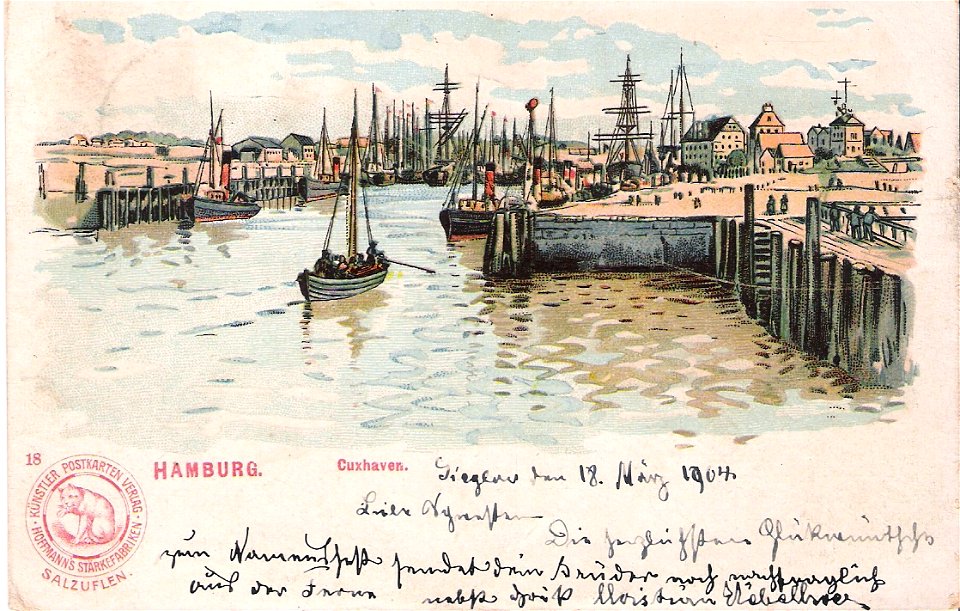 18
KÜNSTLER POSTKARTEN VERLAG
HOFFMANN'S STÄRKEFABRIKEN
SALZUFLEN.
HAMBURG.
Cuxhaven.
den 18. März 1904
Liebe Schwester
Die herzlichsten Glükwünsche
zum Namensfest sendet dein Bruder noch nachträglich
aus der Ferne nebst Gruß